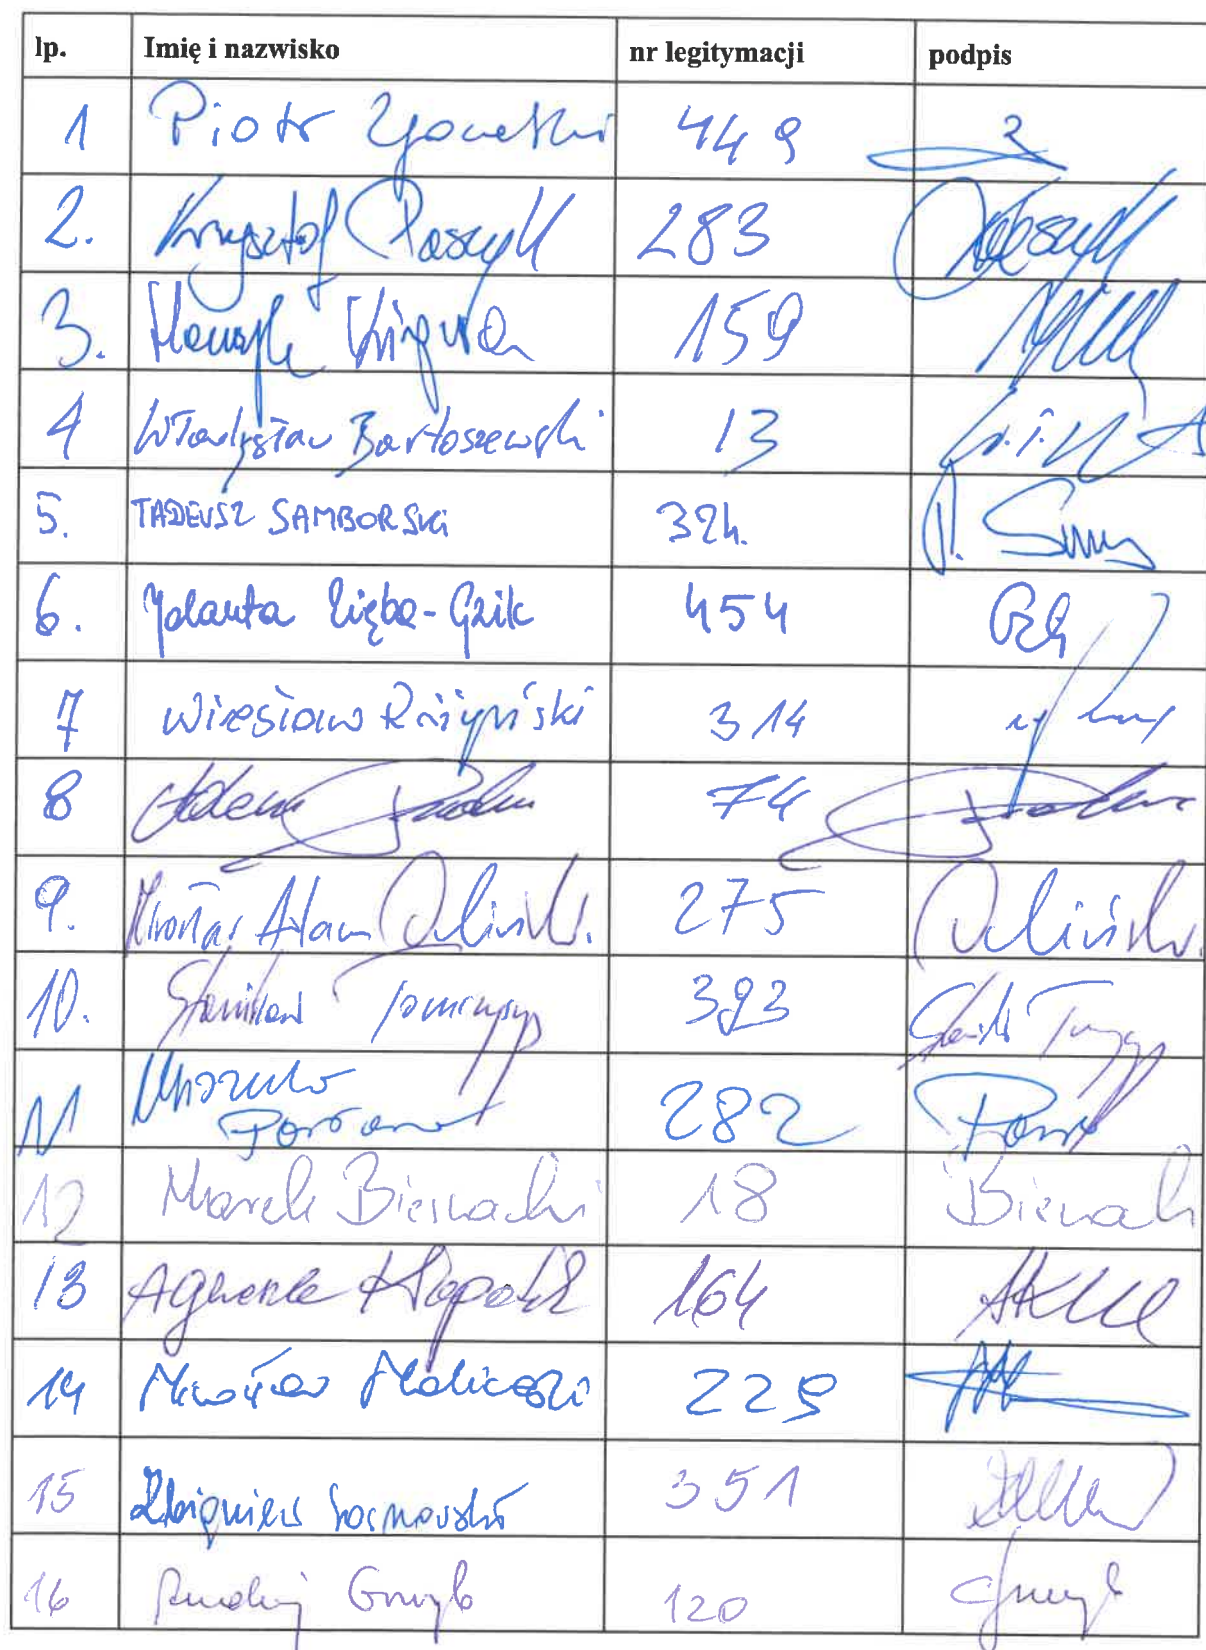 lp. Imię i nazwisko nr legitymacji podpis
1 Piotr Zgorzelski 449
2. Krzysztof Paszyk 283 Paszyk
3. Henryk Kiepura 159
4 Władysław Bartoszewski 13
5. TADEUSZ SAMBORSKI 324.
6. Jolanta Zięba-Gzik 454
7 Wiesław Różyński 314
8 Adam 74
9. Mirosław Adam Orliński. 275 Orliński.
10. Stanisław Tomczyszyn 393
11 Urszula
Pasławska 282
12 Marek Biernacki 18 Biernacki
13 Agnieszka Kłopotek 164
14 Mirosław Maliszewski 229
15 Zbigniew Sosnowski 351
16 Andrzej Grzyb 120 Grzyb